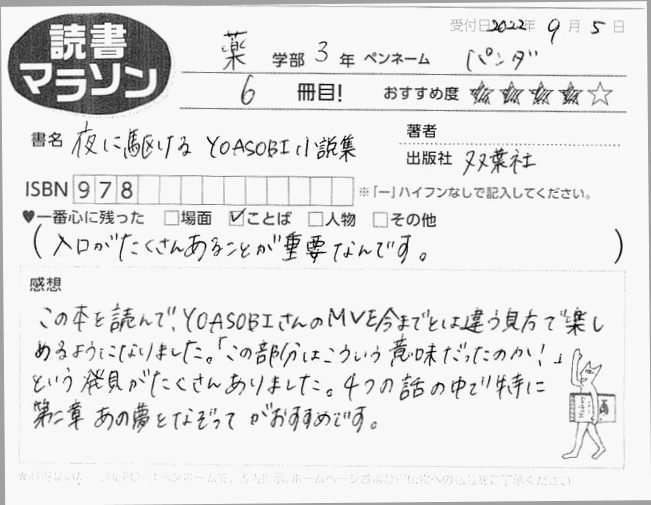 読書
マラソン
受付日 2022年 9月 5日
薬 学部 3 年 ペンネーム パンダ
6 冊目! おすすめ度 ★★★★☆
書名 夜に駆ける YOASOBI小説集
著者
出版社 双葉社
ISBN 978 ※「ー」ハイフンなしで記入してください。
♥一番心に残った □場面 ☑ことば □人物 □その他
(入口がたくさんあることが重要なんです。)
感想
この本を読んで、YOASOBIさんのMVを今までとは違う見方で楽し
めるようになりました。「この部分はこういう意味だったのか!」
という発見がたくさんありました。4つの話の中で特に
第二章 あの夢をなぞって がおすすめです。